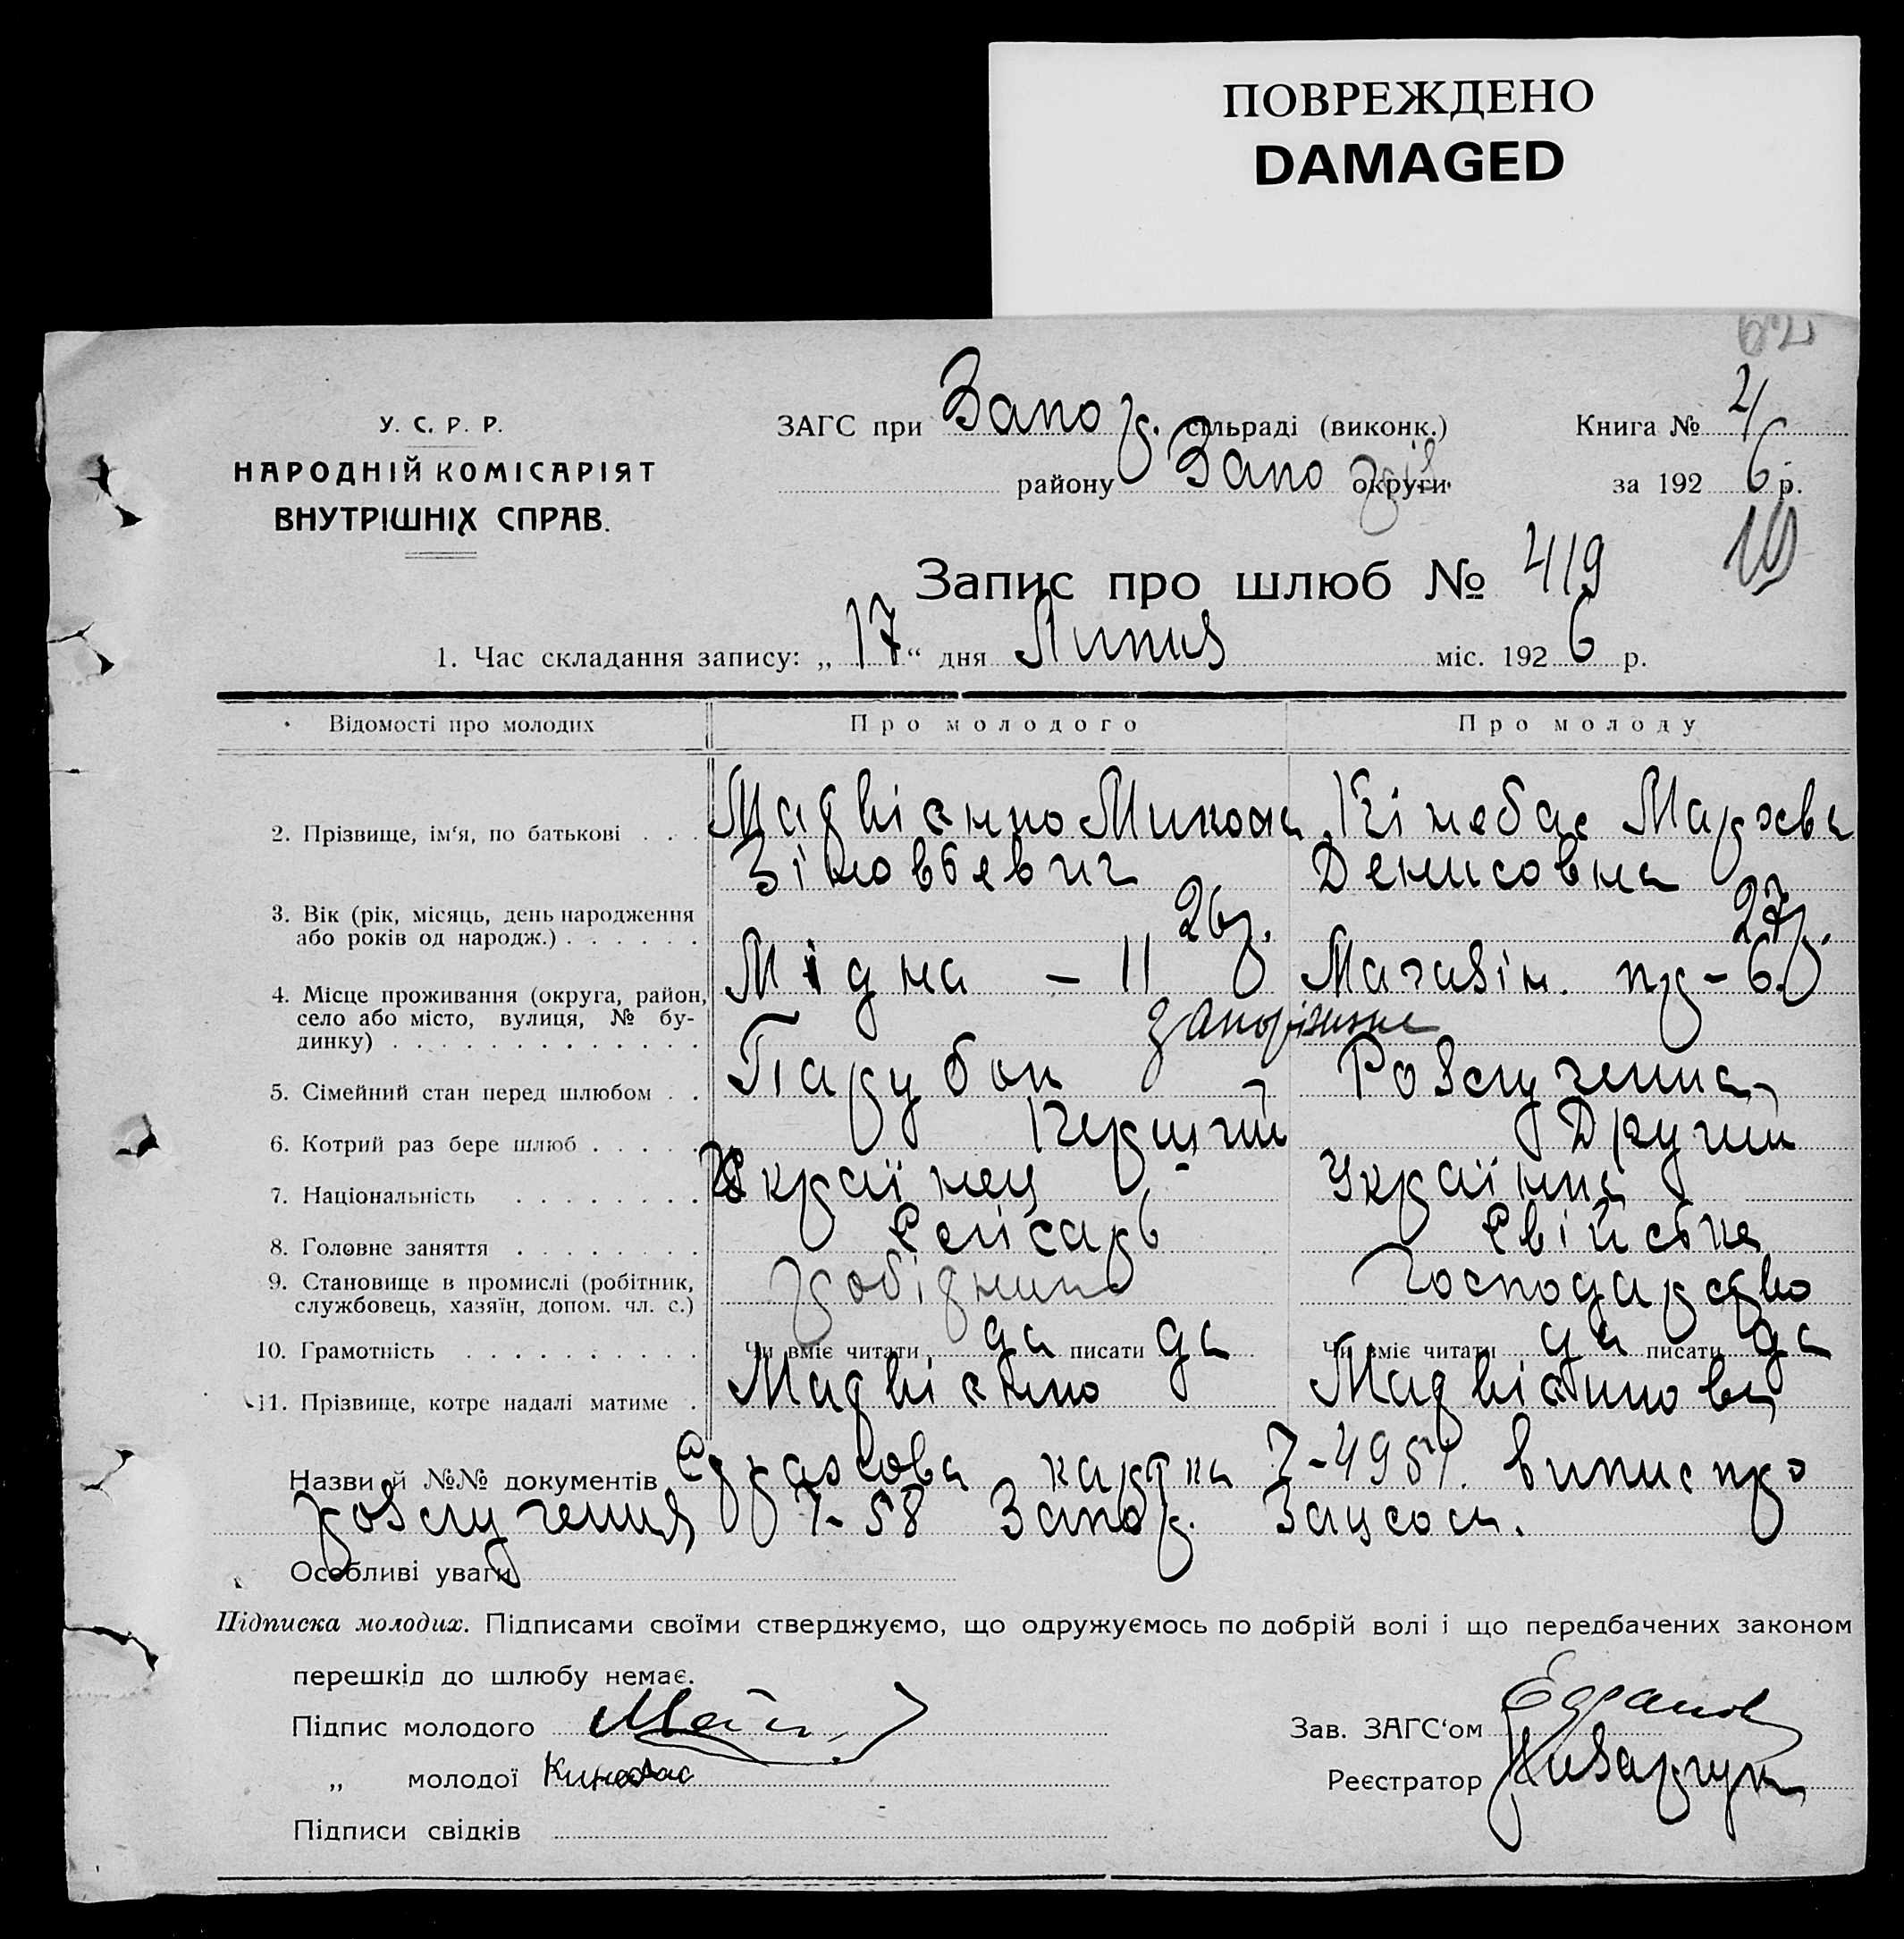 ПОВРЕЖДЕНО
DAMAGED
У. С. Р. Р.
НАРОДНІЙ КОМІСАРІЯТ
ВНУТРІШНІХ СПРАВ.
ЗАГС при Запор. сільраді (виконк.)
Книга № 4
району Запоріз. округи
за 1926 р.
Запис про шлюб № 419
1. Час складання запису: „17“ дня Липня міс. 1926 р.
Відомості про молодих Про молодого Про молоду
2. Прізвище, ім'я, по батькові . . . Мадвієнко Микола Кінебас Мархва
Зіновбевич Денисовна
3. Вік (рік, місяць, день народження
або років од народж.) . . . . . . 26р. 27р.
4. Місце проживання (округа, район,
село або місто, вулиця, № бу-
динку) . . . . . . . . . . . . . Мідна - 11 Магазін. пр-6
Запоріжжє
5. Сімейний стан перед шлюбом . . Парубок Розлученна
6. Котрий раз бере шлюб . . . . . Перщий Другий
7. Національність . . . . . . . . Українец Українка
8. Головне заняття . . . . . . . . Слісарь Свійське
9. Становище в промислі (робітник,
службовець, хазяїн, допом. чл. с.) робідник господарство
10. Грамотність . . . . . . . . . . Чи вміє читати да писати да Чи вміє читати да писати да
11. Прізвище, котре надалі матиме . Мадвієнко Мадвієнкова
Назви й №№ документів картка 7-495 випис про
розлучення 7-58 Запор. Загсом.
Особливі уваги
Підписка молодих. Підписами своїми стверджуємо, що одружуємось по добрій волі і що передбачених законом
перешкід до шлюбу немає.
Підпис молодого
Зав. ЗАГС'ом
„ молодої Кинебас
Реєстратор
Підписи свідків